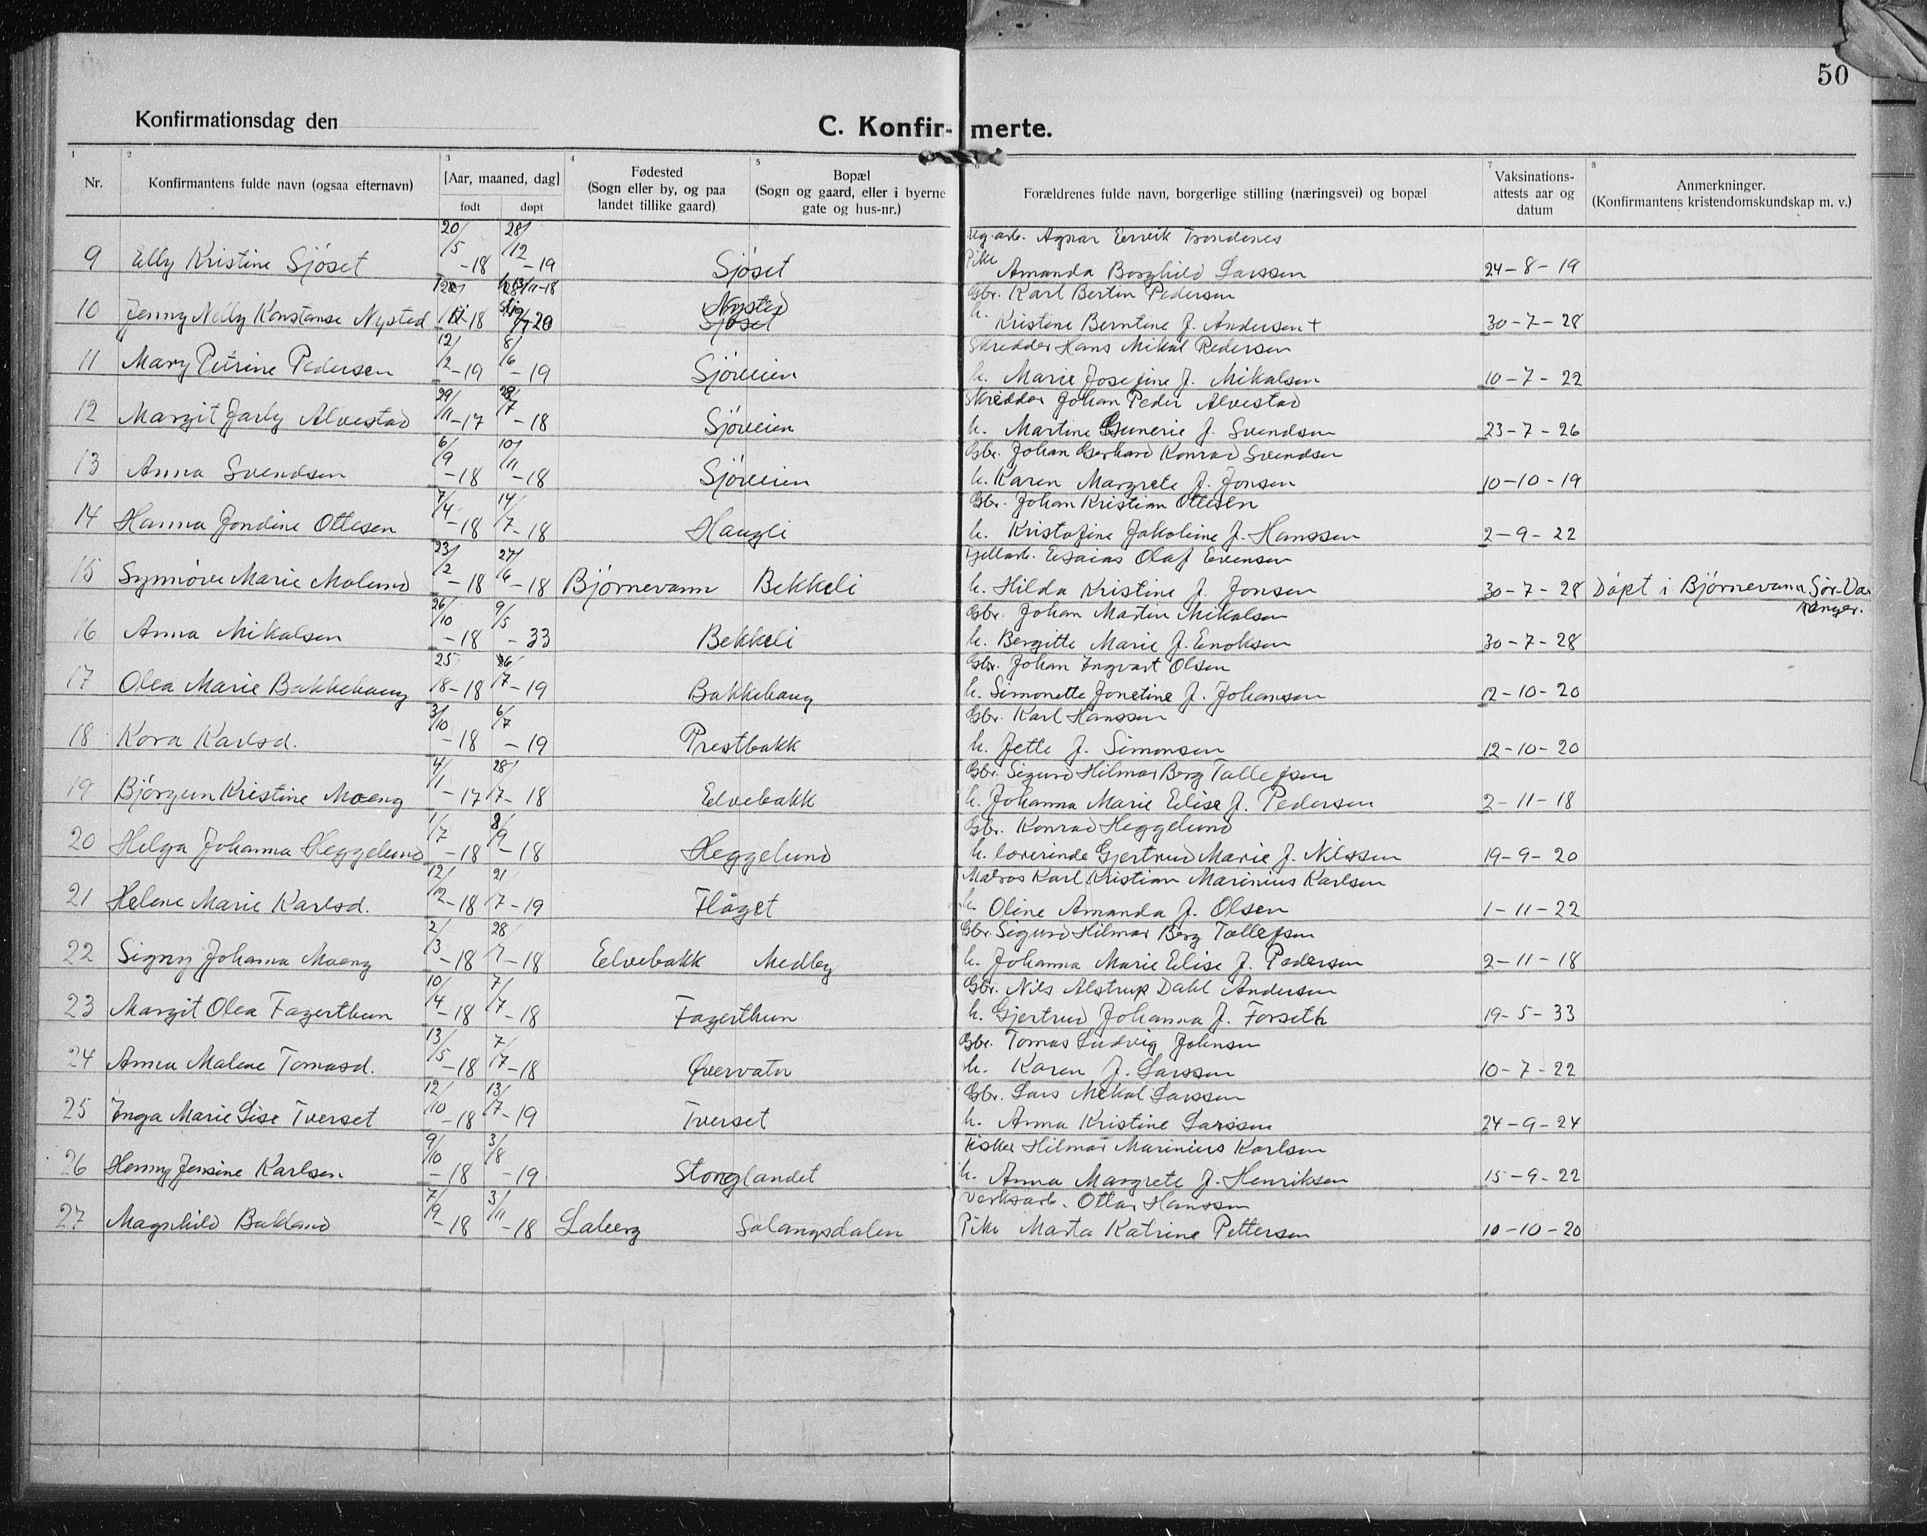 50
Konfirmationsdag den
C. Konfir- merte.
1 2 3 4 5 6 7 8
Nr. Konfirmantens fulde navn (ogsaa efternavn) [Aar, maaned, dag] født døpt Fødested (Sogn eller by, og paa landet tillike gaard) Bopæl (Sogn og gaard, eller i byerne gate og hus-nr.) Forældrenes fulde navn, borgerlige stilling (næringsvei) og bopæl Vaksinations-attests aar og datum Anmerkninger. (Konfirmantens kristendomskundskap m. v.)
Agnar Ervik Trondenes
9 Elly Kristine Sjöset 20/5-18 28/12-19 Sjöset Pike Amanda Borghild Larssen 24-8-19
Gbr. Karl Bertin Pedersen
10 Jenny Nelly Konstanse Nysted Nysted h. Kristine Berntine f. Andersen + 30-7-28
Skredder Hans Mikal Pedersen
11 Mary Petrine Pedersen 12/2-19 8/6-19 Sjöveien h. Marie Josefine f. Mikalsen 10-7-22
Skredder Johan Peder Alvestad
12 Margit Jarly Alvestad 29/11-17 28/7-18 Sjöveien h. Martine Gunerie f. Svendsen 23-7-26
Gbr. Johan Gerhard Konrad Svendsen
13 Anna Svendsen 6/9-18 10/11-18 Sjöveien h. Karen Margrete f. Jonsen 10-10-19
Gbr. Johan Kristian Ottesen
14 Hanna Jondine Ottesen 7/4-18 14/7-18 Haugli h. Kristofine Jakobine f. Hanssen 2-9-22
Fjellarb. Esaias Olaf Evensen
15 Synnöve Marie Molund 23/2-18 27/6-18 Björnevann Bekkeli h. Hilda Kristine f. Jonsen 30-7-28 Döpt i Björnevann, Sör-Varanger.
Gbr. Johan Martin Mikalsen
16 Anna Mikalsen 26/10-18 9/5-33 Bekkeli h. Bergitte Marie f. Enoksen 30-7-28
Gbr. Johan Ingvart Olsen
17 Olea Marie Bakkehaug 25/8-18 26/7-19 Bakkehaug h. Simonette Jonetine f. Johansen 12-10-20
Gbr. Karl Hanssen
18 Kora Karlsd. 3/10-18 6/7-19 Prestbakk h. Jette f. Simonsen 12-10-20
Gbr. Sigurd Hilmar Berg Tollefsen
19 Björgun Kristine Moeng 4/11-17 28/7-18 Elvebakk h. Johanna Marie Elise f. Pedersen 2-11-18
Gbr. Konrad Heggelund
20 Helga Johanna Heggelund 1/7-18 8/9-18 Heggelund h. lærerinde Gjertrud Marie f. Nilssen 19-9-20
Matros Karl Kristian Marinius Karlsen
21 Helene Marie Karlsd. 12/12-18 21/7-19 Flåget h. Oline Amanda f. Olsen 1-11-22
Gbr. Sigurd Hilmar Berg Tollefsen
22 Signy Johanna Moeng 2/3-18 28/7-18 Elvebakk Medby h. Johanna Marie Elise f. Pedersen 2-11-18
Gbr. Nils Alstrup Dahl Andersen
23 Margit Olea Fagerthun 10/4-18 7/7-18 Fagerthun h. Gjertrud Johanna f. Forseth 19-5-33
Gbr. Tomas Ludvig Johnsen
24 Anna Malene Tomasd. 13/5-18 7/7-18 Øvervatn h. Karen f. Larssen 10-7-22
Gbr. Lars Mikal Larssen
25 Inga Marie Lise Tverset 12/10-18 13/7-19 Tverset h. Anna Kristine Larssen 24-9-24
Fisker Hilmar Marinius Karlsen
26 Henny Jensine Karlsen 9/10-18 3/8-19 Stonglandet h. Anna Margrete f. Henriksen 15-9-22
Verksarb. Ottar Hanssen
27 Magnhild Bakland 7/9-18 3/11-18 Laberg Salangsdalen Pike Marta Katrine Pettersen 10-10-20